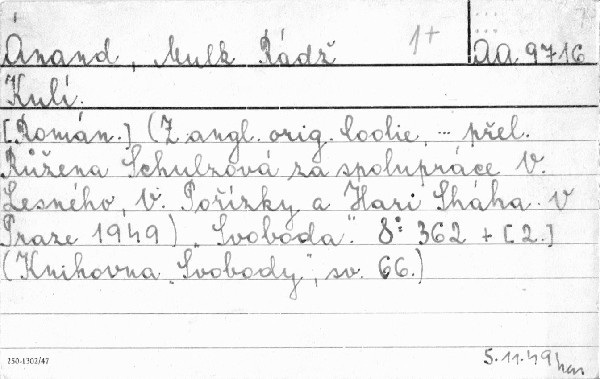 Ánand, Mulk Rádž 1+ AA 9716
Kulí.
[Román.] (Z angl. orig. Coolie, ... přel.
Růžena Schulzová za spolupráce V.
Lesného, V. Pořízky a Hari Sháha. V
Praze 1949) „Svoboda“. 8° 362 + [2.]
(Knihovna „Svobody“, sv. 66.)
250-1302/47 5.11.49